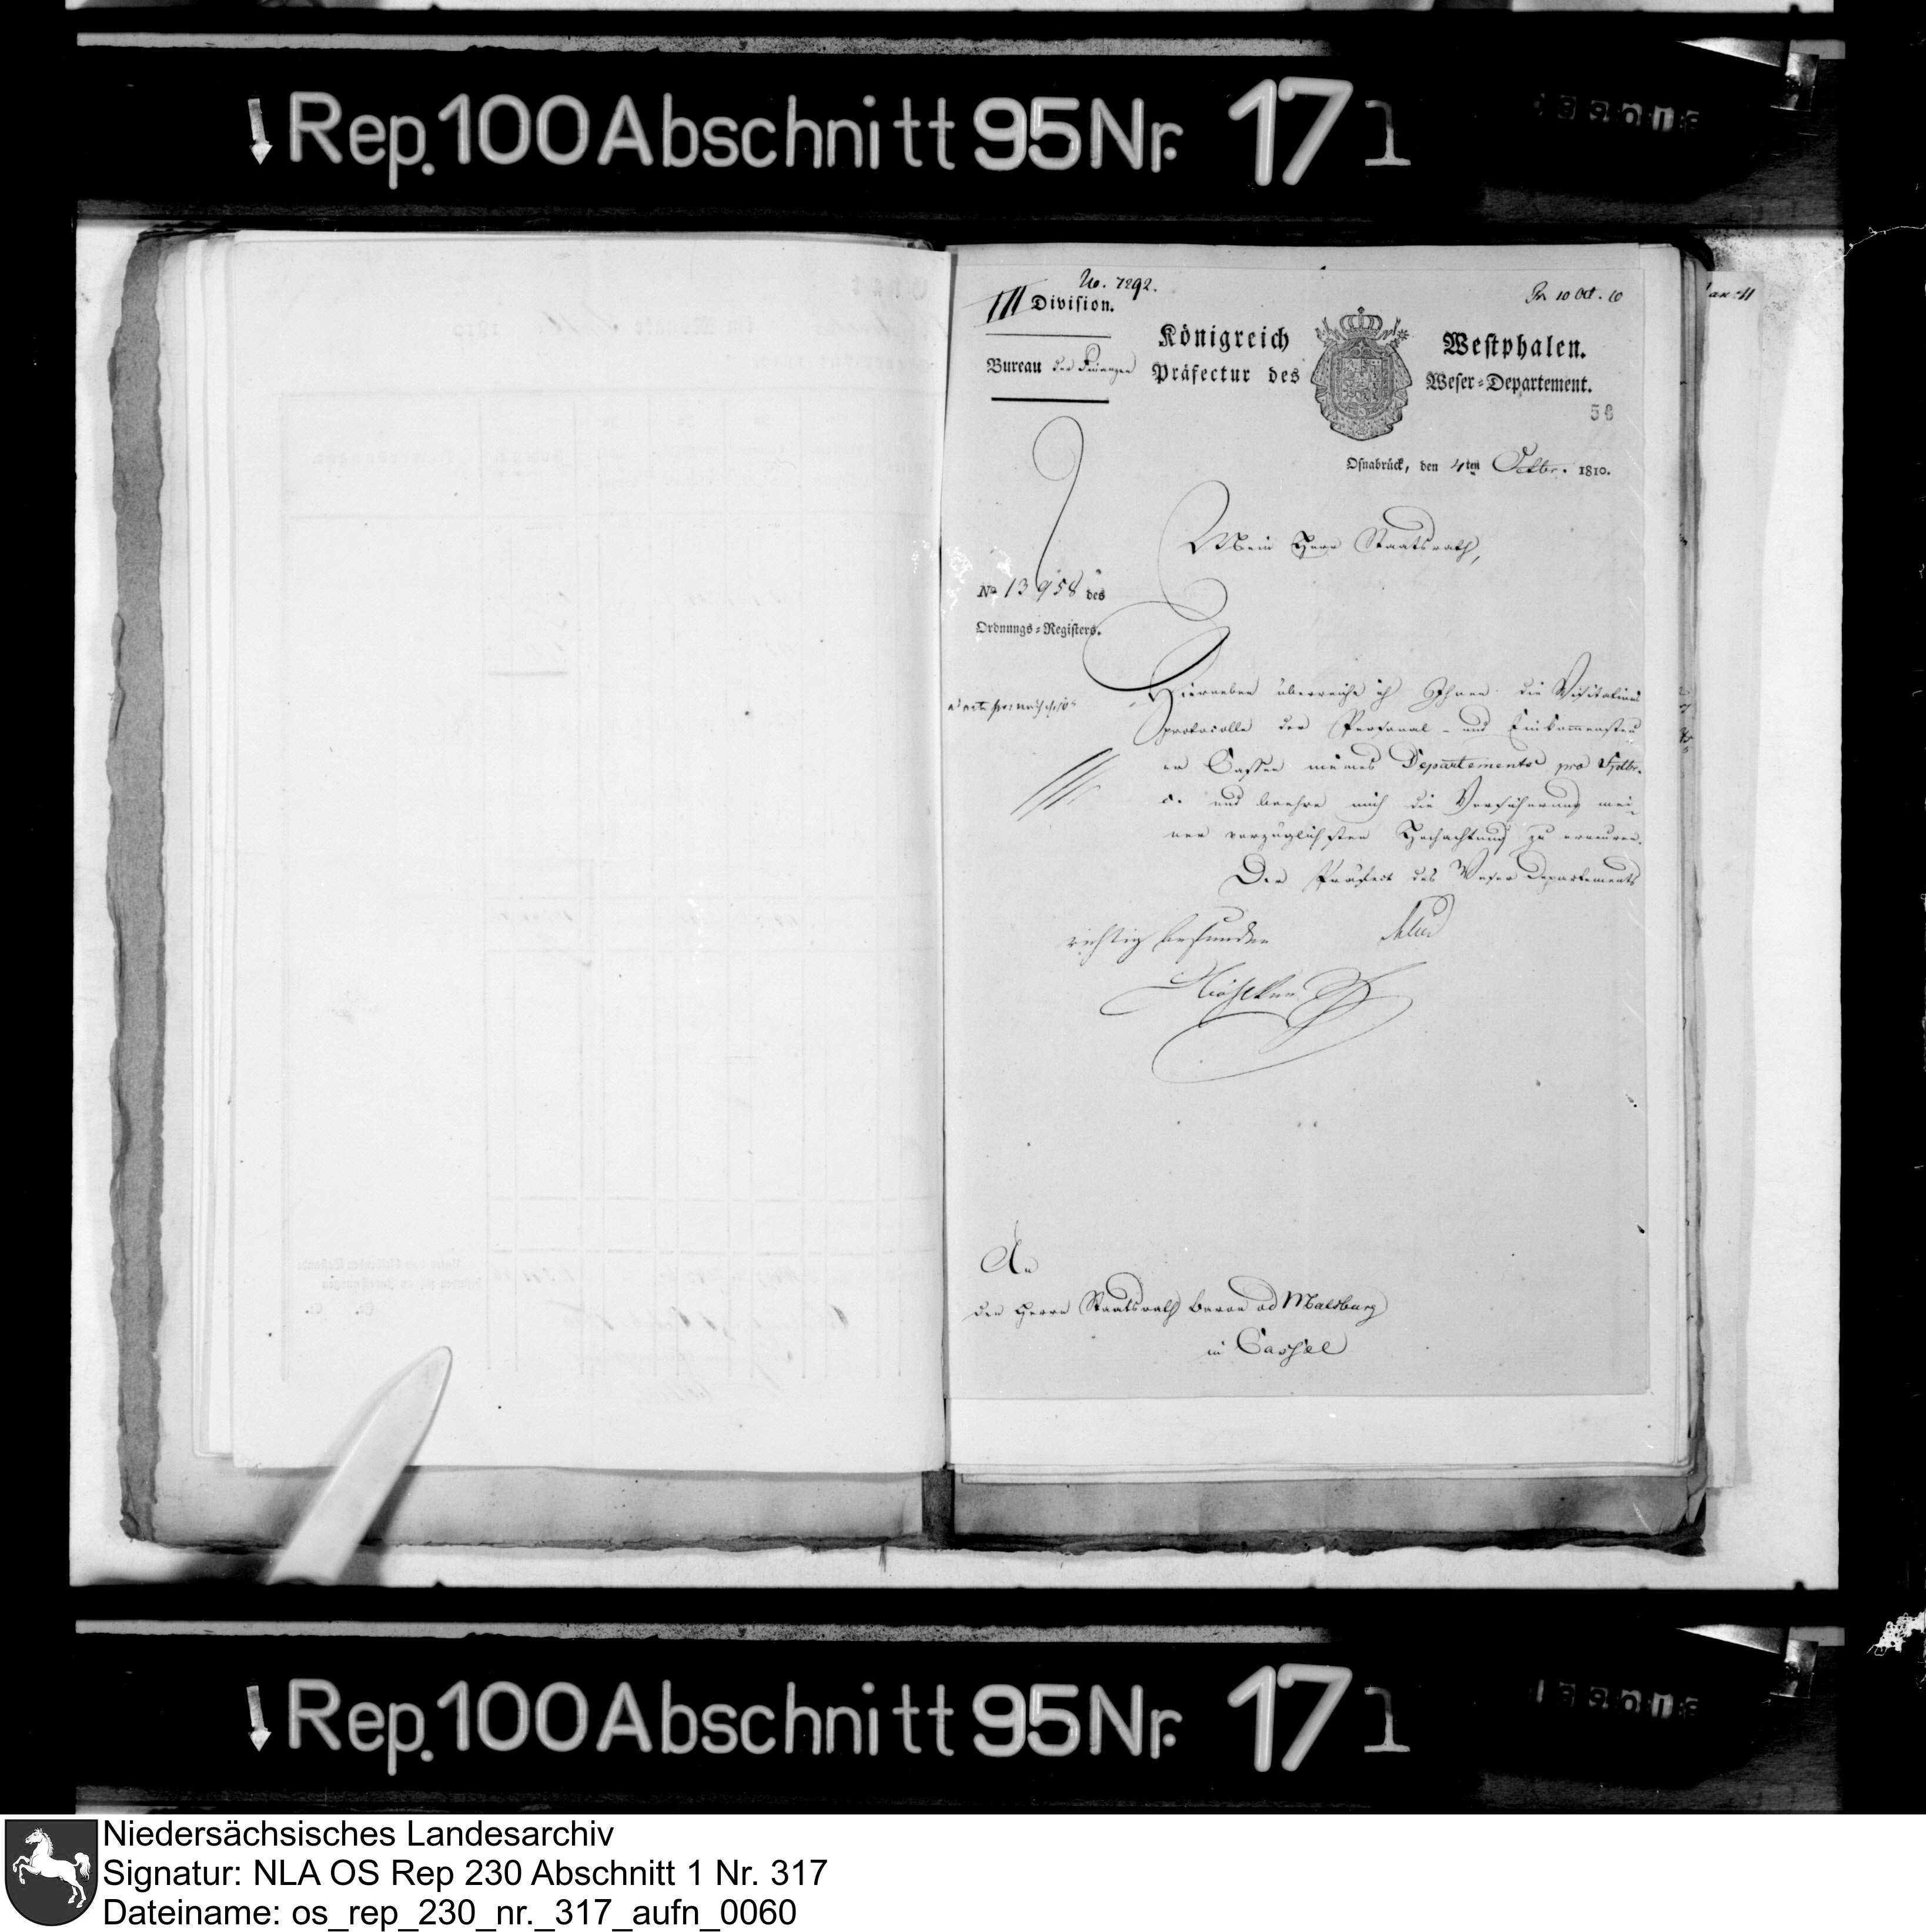 Rep. 100 Abschnitt 95 Nr. 17 1
No. 7292.
III Division.
Pr 10 Oct. 10
Königreich Westphalen.
Bureau der Finanzen
Präfectur des Weser-Departement.
58
Osnabrück, den 4ten Octbr. 1810.
Mein Herr Staatsrath,
No 13958 des
Ordnungs-Registers.
Hierneben überreiche ich Ihnen die Visitations
protocolle der Personal- und Einkommensteu
er Cassen meines Departements pro Septbr.
c. und beehre mich die Versicherung mei
ner vorzüglichsten Hochachtung zu erneuren.
Der Präfect des Weser Departements
richtig befunden
An
den Herrn Staatsrath Baron von Malsburg
in Cassel
Rep. 100 Abschnitt 95 Nr. 17 1
Niedersächsisches Landesarchiv
Signatur: NLA OS Rep 230 Abschnitt 1 Nr. 317
Dateiname: os_rep_230_nr._317_aufn_0060